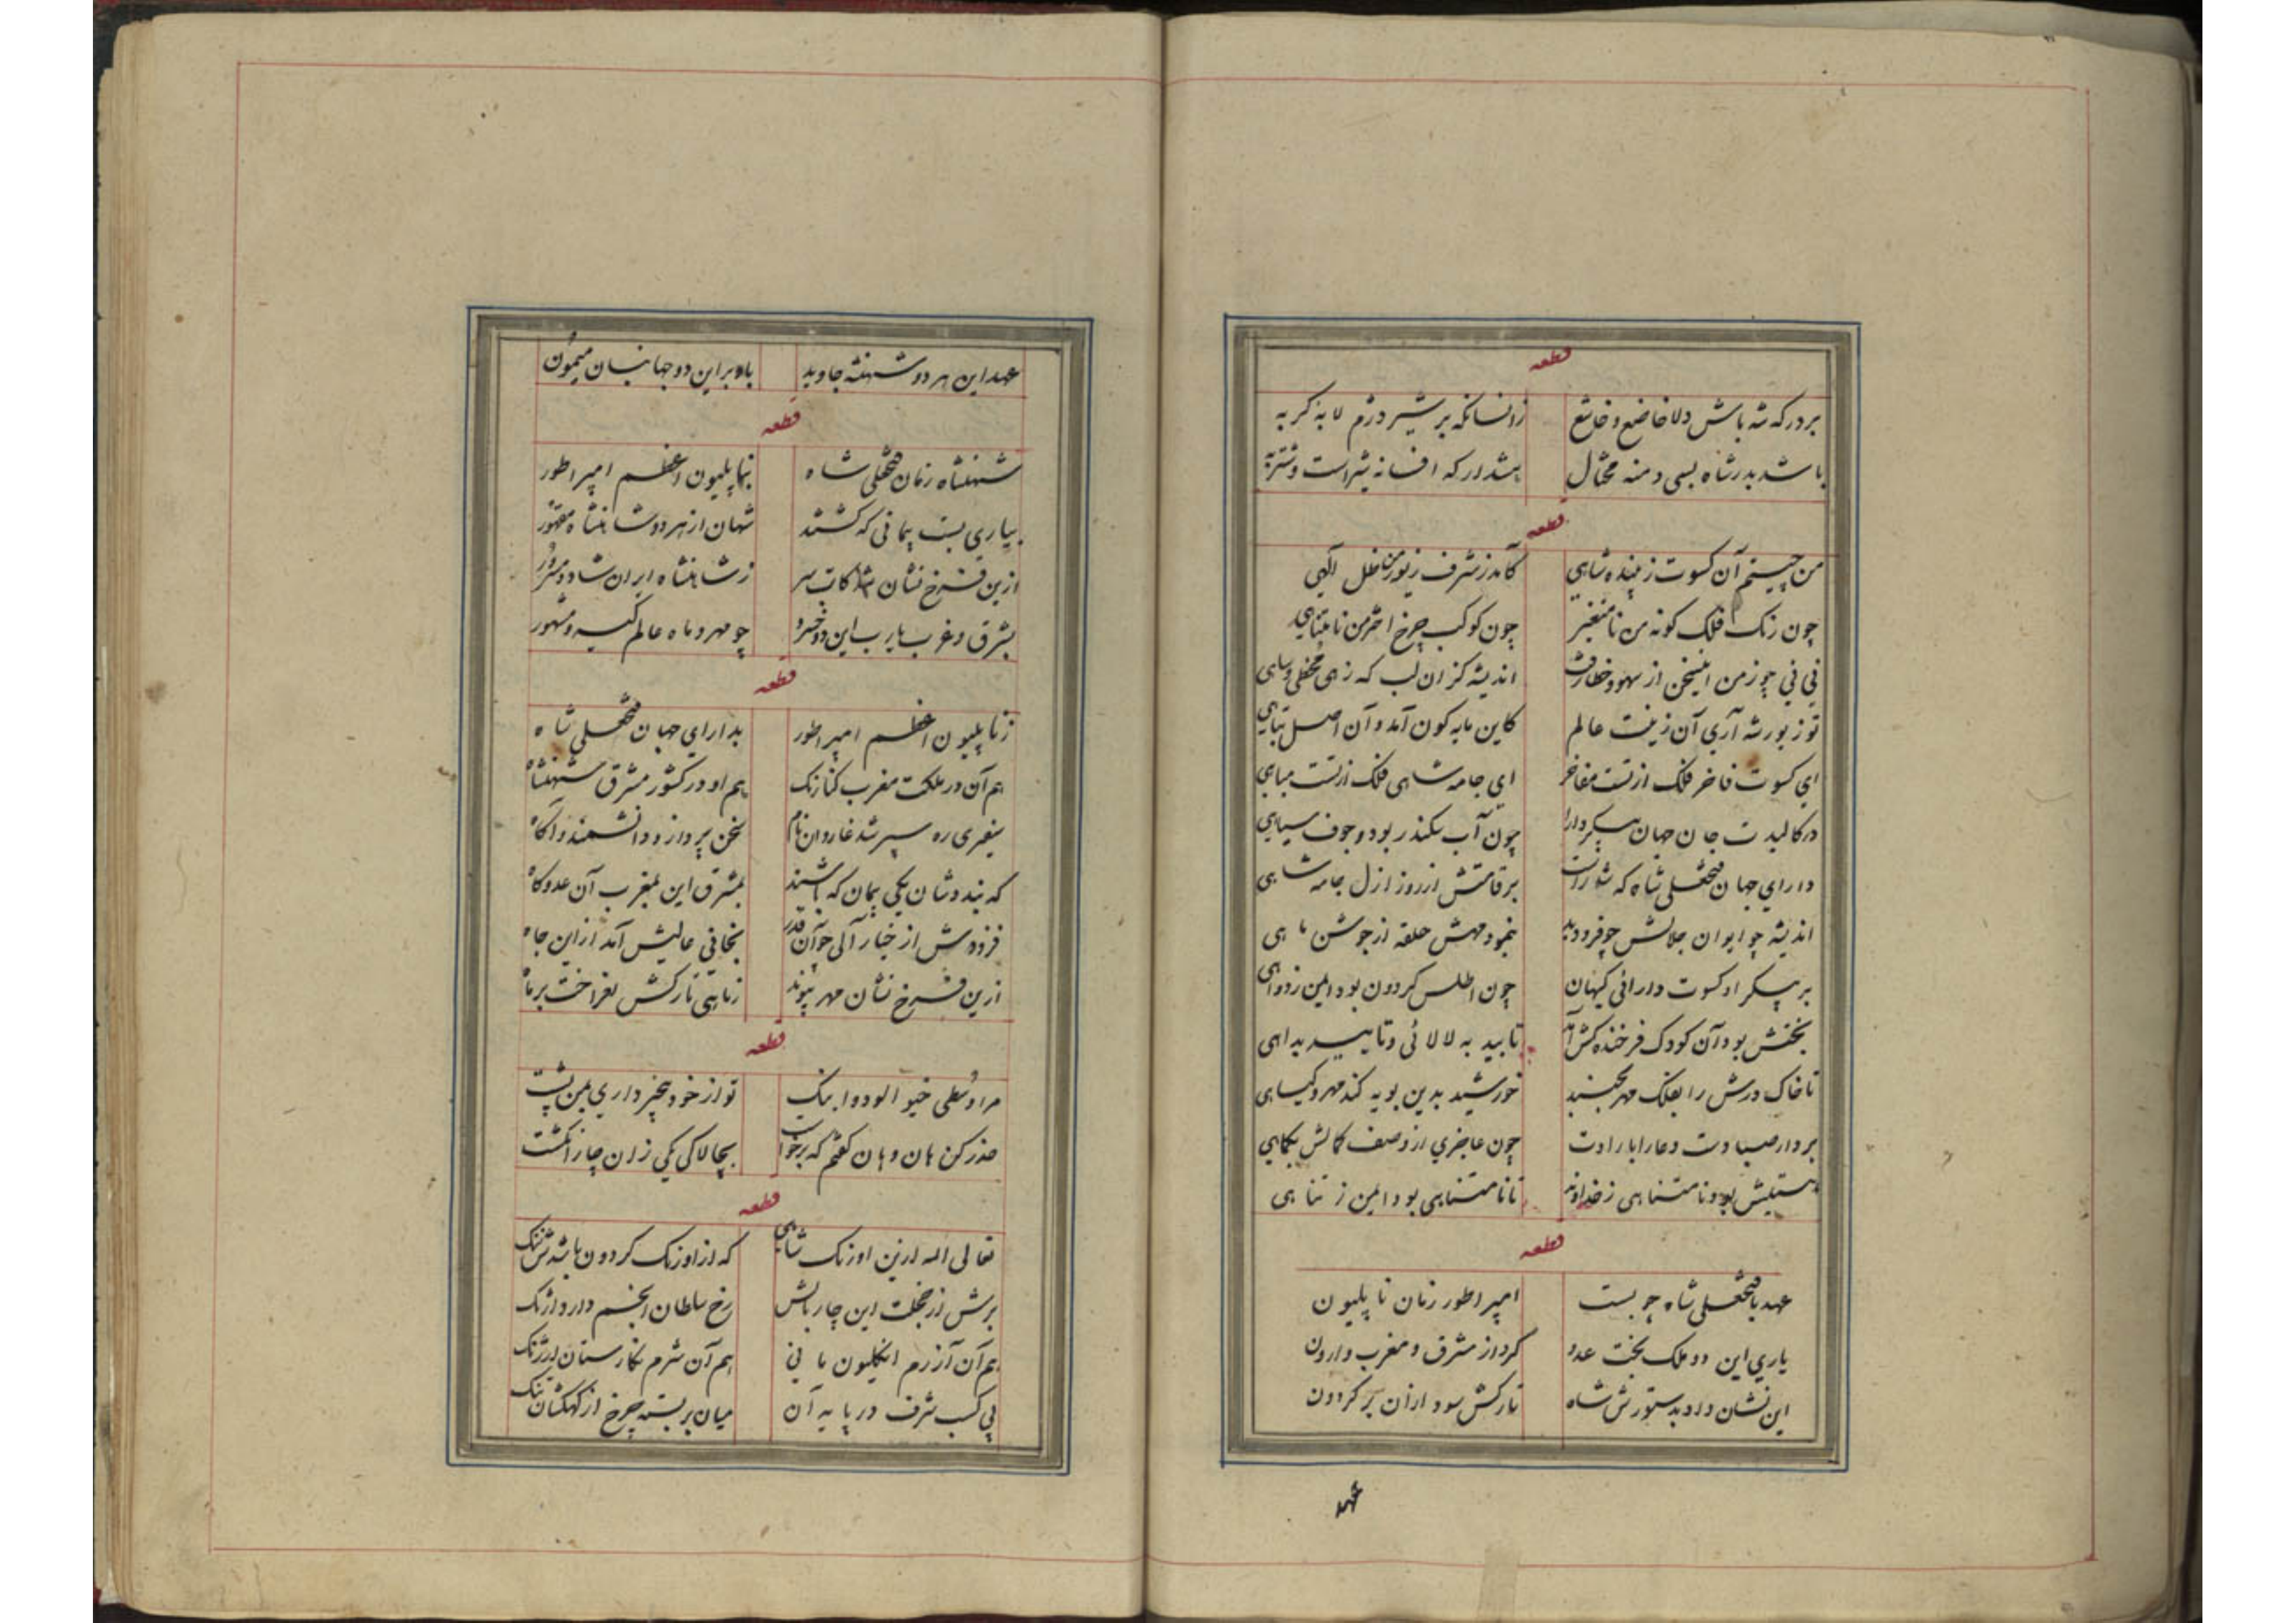 قطعه
بردرکه شه باش دلا خاضع و خاشع زانسانکه بر شیر دژم لابه کربه
باشد بدر شاه بسی دمنه محتال پندار که افسانه شیر است و شتربه
قطعه
من چیستم آن کسوت زیبنده شاهی کآمد ز شرف زیور من ظل الهی
چون رنک فلک کونه من نامتغیر چون کوکب چرخ اختر من نامتناهی
نی نی چو ز من اینسخن از سهو و خطا رفت اندیشه کزان لب که زهی مخطی و ساهی
تو زیور شه آری آن زینت عالم کاین مایه کون آمد و آن اصل تباهی
ای کسوت فاخر فلک از تست مفاخر ای جامه شاهی فلک از تست مباهی
در کالبدت جان جهان پیکر دارا چون آب سکندر بود و جوف سیاهی
دارای جهان فتحعلی شاه که شد راست بر قامتش از روز ازل جامه شاهی
اندیشه چو ایوان جلالش چو فرو دید بنمود مهش حلقه از جوشن ماهی
بر پیکر او کسوت دارائی کیهان چون اطلس کردون بود ایمن ز دواهی
بختش بود آن کودک فرخنده کش آمد تایید به لالائی و تایید بداهی
تا خاک درش را بفلک مهر بجنبد خورشید بدین بویه کند مهر کیاهی
بردار صبا دست دعا را بارادت چون عاجزی از وصف کمالش بکماهی
هستیش بود نامتناهی ز خداوند تا نامتناهی بود ایمن ز تناهی
قطعه
عهد با فتحعلی شاه چو بست امپراطور زمان ناپلیون
یاری این دو ملک بخت عدو کرد از مشرق و مغرب وارون
این نشان داد بدستورش شاه تارکش سود ازان بر کردون
عهد
عهد این هر دو شهنشه جاوید باد بر این دو جهانبان میمون
قطعه
شهنشاه زمان فتحعلی شاه بناپلیون اعظم امپراطور
بیاری بست پیمانی که کشتند شهان از هر دو شاهنشاه مقهور
ازین فرخ نشان شد کاتب سر ز شاهنشاه ایران شاد و مسرور
بشرق و غرب یارب این دو خسرو چو مهر و ماه عالم کیر و مشهور
قطعه
ز ناپلیون اعظم امپراطور بدارای جهان فتحعلی شاه
هم آن در ملکت مغرب کنارنک هم او در کشور مشرق شهنشاه
سفیری ره سپر شد غاردان نام سخن پرداز و دانشمند و آکاه
که بندد شان یکی پیمان که باشند بمشرق این بمغرب آن عدو کاه
فزودش از خیار آلی چو آن قدر بخانی عالیش آمد ازین جاه
ازین فرخ نشان مهر پیوند ز ماهی تارکش بفراخت بر ماه
قطعه
مرا وسطی خیو آلود و اینک تو از خود بیخبر داری بمن پشت
حذر کن هان و هان کفتم که برخواست بچالاکی یکی زان چار انکشت
قطعه
تعالی الله ازین اورنک شاهی که از اورنک کردون باشدش ننک
برش از خجلت این چار بالش رخ سلطان انجم دارد آژنک
هم آن آزرم انکلیون مانی هم آن شرم نکارستان ارژنک
پی کسب شرف در پایه آن میان بر بسته چرخ از کهکشان تنک